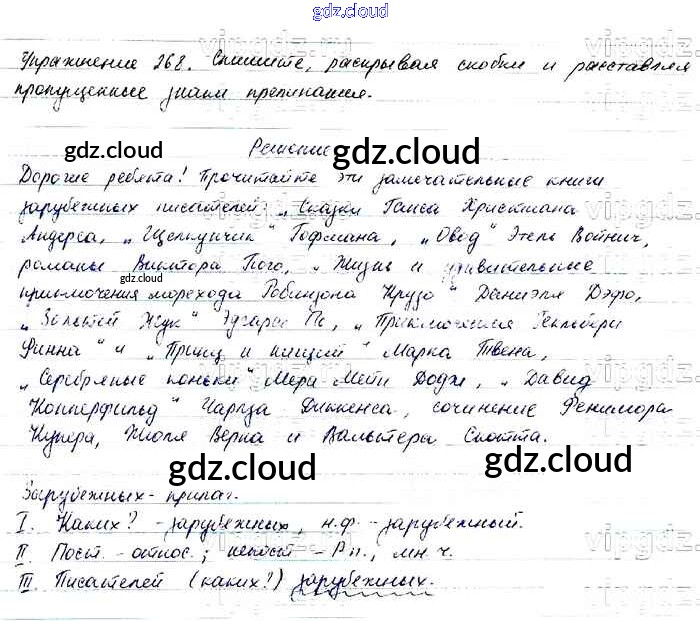 gdz.cloud
Упражнение 268. Спишите, раскрывая скобки и расставляя
пропущенные знаки препинания.
Решение
gdz.cloud
gdz.cloud
Дорогие ребята! Прочитайте эти замечательные книги
зарубежных писателей: „Сказки Ганса Христиана
Андерса, „Щелкунчик“ Гофмана, „Овод“ Этель Войнич,
романы Виктора Гюго, „Жизнь и удивительные
gdz.cloud
приключения морехода Робинзона Крузо“ Даниэля Дефо,
„Золотой жук“ Эдгара По, „Приключения Гекльбери
Финна“ и „Принц и нищий“ Марка Твена,
„Серебряные коньки“ Мери Мейп Додж, „Давид
Копперфильд“ Чарлза Диккенса, сочинение Фенимора
Купера, Жюля Верна и Вальтера Скотта.
gdz.cloud
gdz.cloud
Зарубежных - прилаг.
I. Каких? - зарубежных, н.ф. - зарубежный.
II. Пост. - относ.; непост - Р.п., мн.ч.
III. Писателей (каких?) зарубежных.
vipgdz.ru